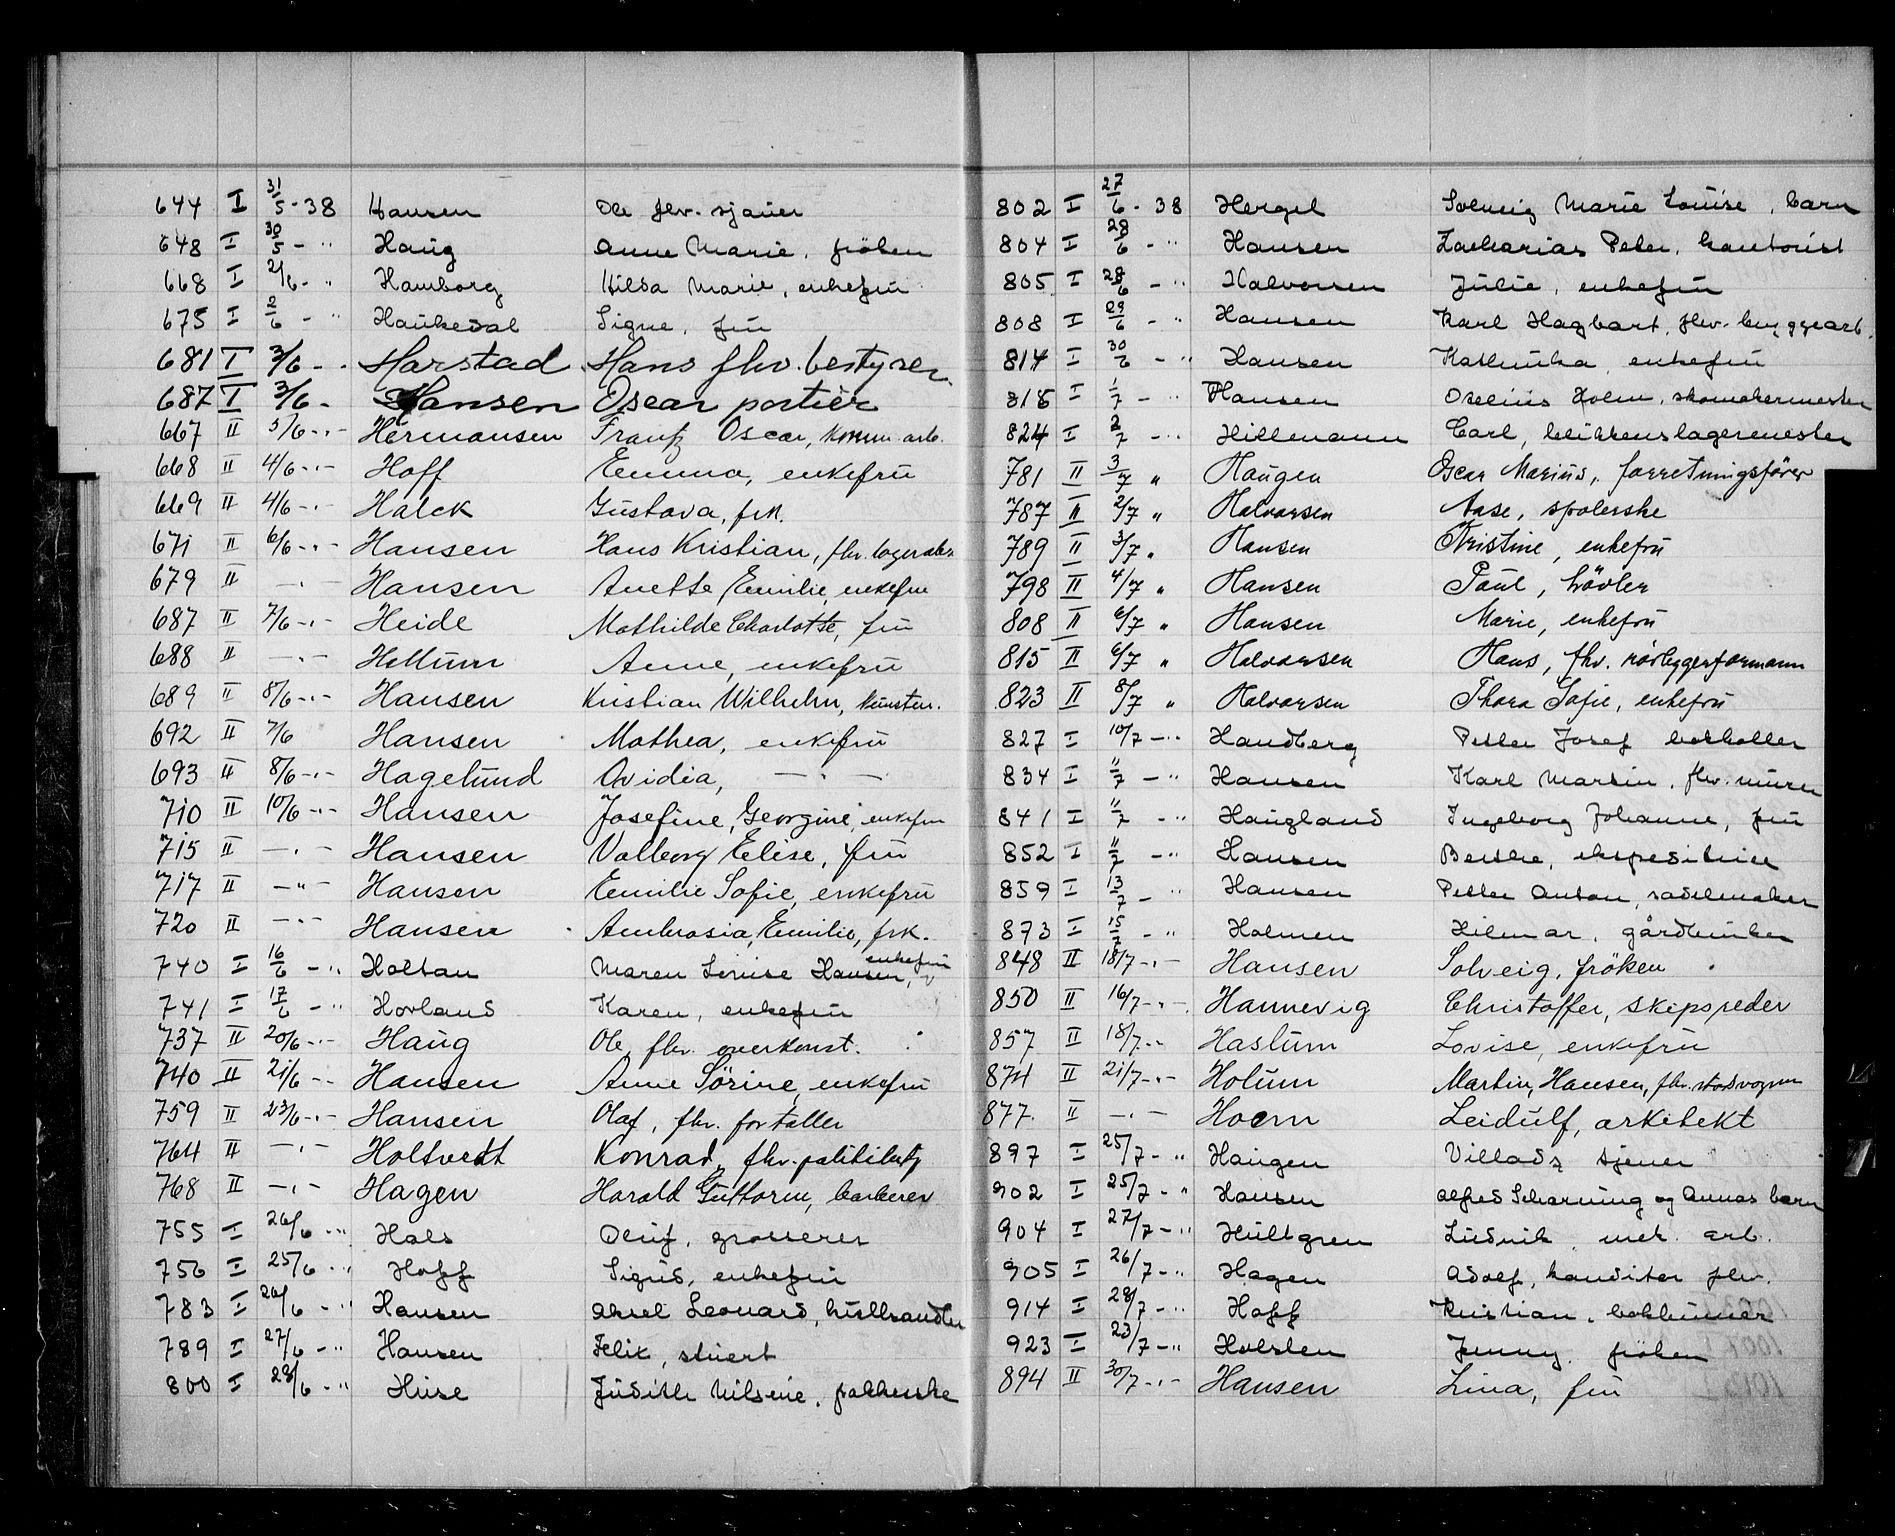 644 I 31/5-38 Hansen Ole fhv. sjauer
648 I 30/5 - " Haug Anne Marie, fröken
668 I 2/6 - " Hamborg Hilda Marie, enkefru
675 I 2/6 - " Haukedal Signe, fru
681 I 3/6 - . Harstad Hans fhv. bestyrer
687 I 3/6 - Hansen Oscar portier
667 II 5/6 -"- Hermansen Frantz Oscar, komm. arb.
668 II 4/6 -"- Hoff Emma, enkefru
669 II 4/6 -"- Halck Gustava, frk.
671 II 6/6 -"- Hansen Hans Kristian, fhv. lagerarb.
679 II -"- Hansen Anette Emilie, enkefru
687 II 7/6 -"- Heide Mathilde Charlotte, fru
688 II -"- Hellum Anne, enkefru
689 II 8/6 -"- Hansen Kristian Wilhelm, kunstn.
692 II 7/6 Hansen Mathea, enkefru
693 II 8/6 -"- Hagelund Ovidia, -"-
710 II 10/6 -"- Hansen Josefine, Georgine, enkefru
715 II -"- Hansen Valborg Elise, fru
717 II -"- Hansen Emilie Sofie, enkefru
720 II -"- Hansen Ambrosia, Emilie, frk.
740 I 16/6 - " Holtan Maren Louise Hansen, enkefru
741 I 17/6 - " Hovland Karen, enkefru
737 II 20/6 -"- Haug Ole, fhv. overkonst.
740 II 21/6 -"- Hansen Anne Sörine, enkefru
759 II 23/6 -"- Hansen Olaf, fhv. fortaller
764 II -"- Holtvedt Konrad, fhv. politibetj
768 II -"- Hagen Harald Guttorm, barberer
755 I 26/6 - " Hals Oluf, grosserer
756 I 25/6 - " Hoff Sigrid, enkefru
783 I 26/6 - " Hansen Aksel Leonard, hullsandler
789 I 27/6 - " Hansen Felix, stuert
800 I 28/6 - " Huse Judith Nilsine, pakkerske
802 I 27/6 - 38 Hergel Solveig Marie Louise, barn
804 I 28/6 - " Hansen Zacharias Peter, kontorist
805 I 28/6 - " Halvorsen Julie, enkefru
808 I 29/6 - " Hansen Karl Hagbart, fhv. bryggearb.
814 I 30/6 - " Hansen Kathinka, enkefru
818 I 1/7 - " Hansen Oselius Holm, skomakermester
824 I 2/7 - " Hillemann Carl, blikkenslagermester
781 II 3/7 " Haugen Oscar Marius, forretningsfører
787 II 2/7 " Halvorsen Aase, spolerske
789 II 3/7 " Hansen Kristine, enkefru
798 II 4/7 " Hansen Paul, hövler
808 II 6/7 " Hansen Marie, enkefru
815 II 6/7 " Halvorsen Hans, fhv. rörleggerformann
823 II 8/7 " Halvorsen Thora Sofie, enkefru
827 I 10/7 - " Handberg Petter Josef bokholler
834 I 11/7 - " Hansen Karl Martin, fhv. murer
841 I 11/7 - " Haugland Ingeborg Johanne, fru
852 I 11/7 - " Hansen Berthe, ekspeditrice
859 I 13/7 - " Hansen Petter Anton, sadelmaker
873 I 15/7 - " Holmen Hilmar, gårdbruker
848 II 18/7 -"- Hansen Solveig, fröken
850 II 16/7 -"- Hannevig Christoffer, skipsreder
857 II 18/7 -"- Haslum Lovise, enkefru
874 II 21/7 -"- Holum Martin, Hansen, fhv. stadsvognm
877 II -"- Hoem Leidulf, arkitekt
897 I 25/7 - " Haugen Villadz sjener
902 I 25/7 - " Hansen Alfred Scharning og Annas barn
904 I 27/7 - " Hultgren Ludvik, mek. arb.
905 I 26/7 - " Hagen Adolf, konditor fhv.
914 I 28/7 - " Hoff Kristian, bokbinder
923 I 23/7 - " Holsten Jenny, fröken
894 II 30/7 -"- Hansen Lina, fru